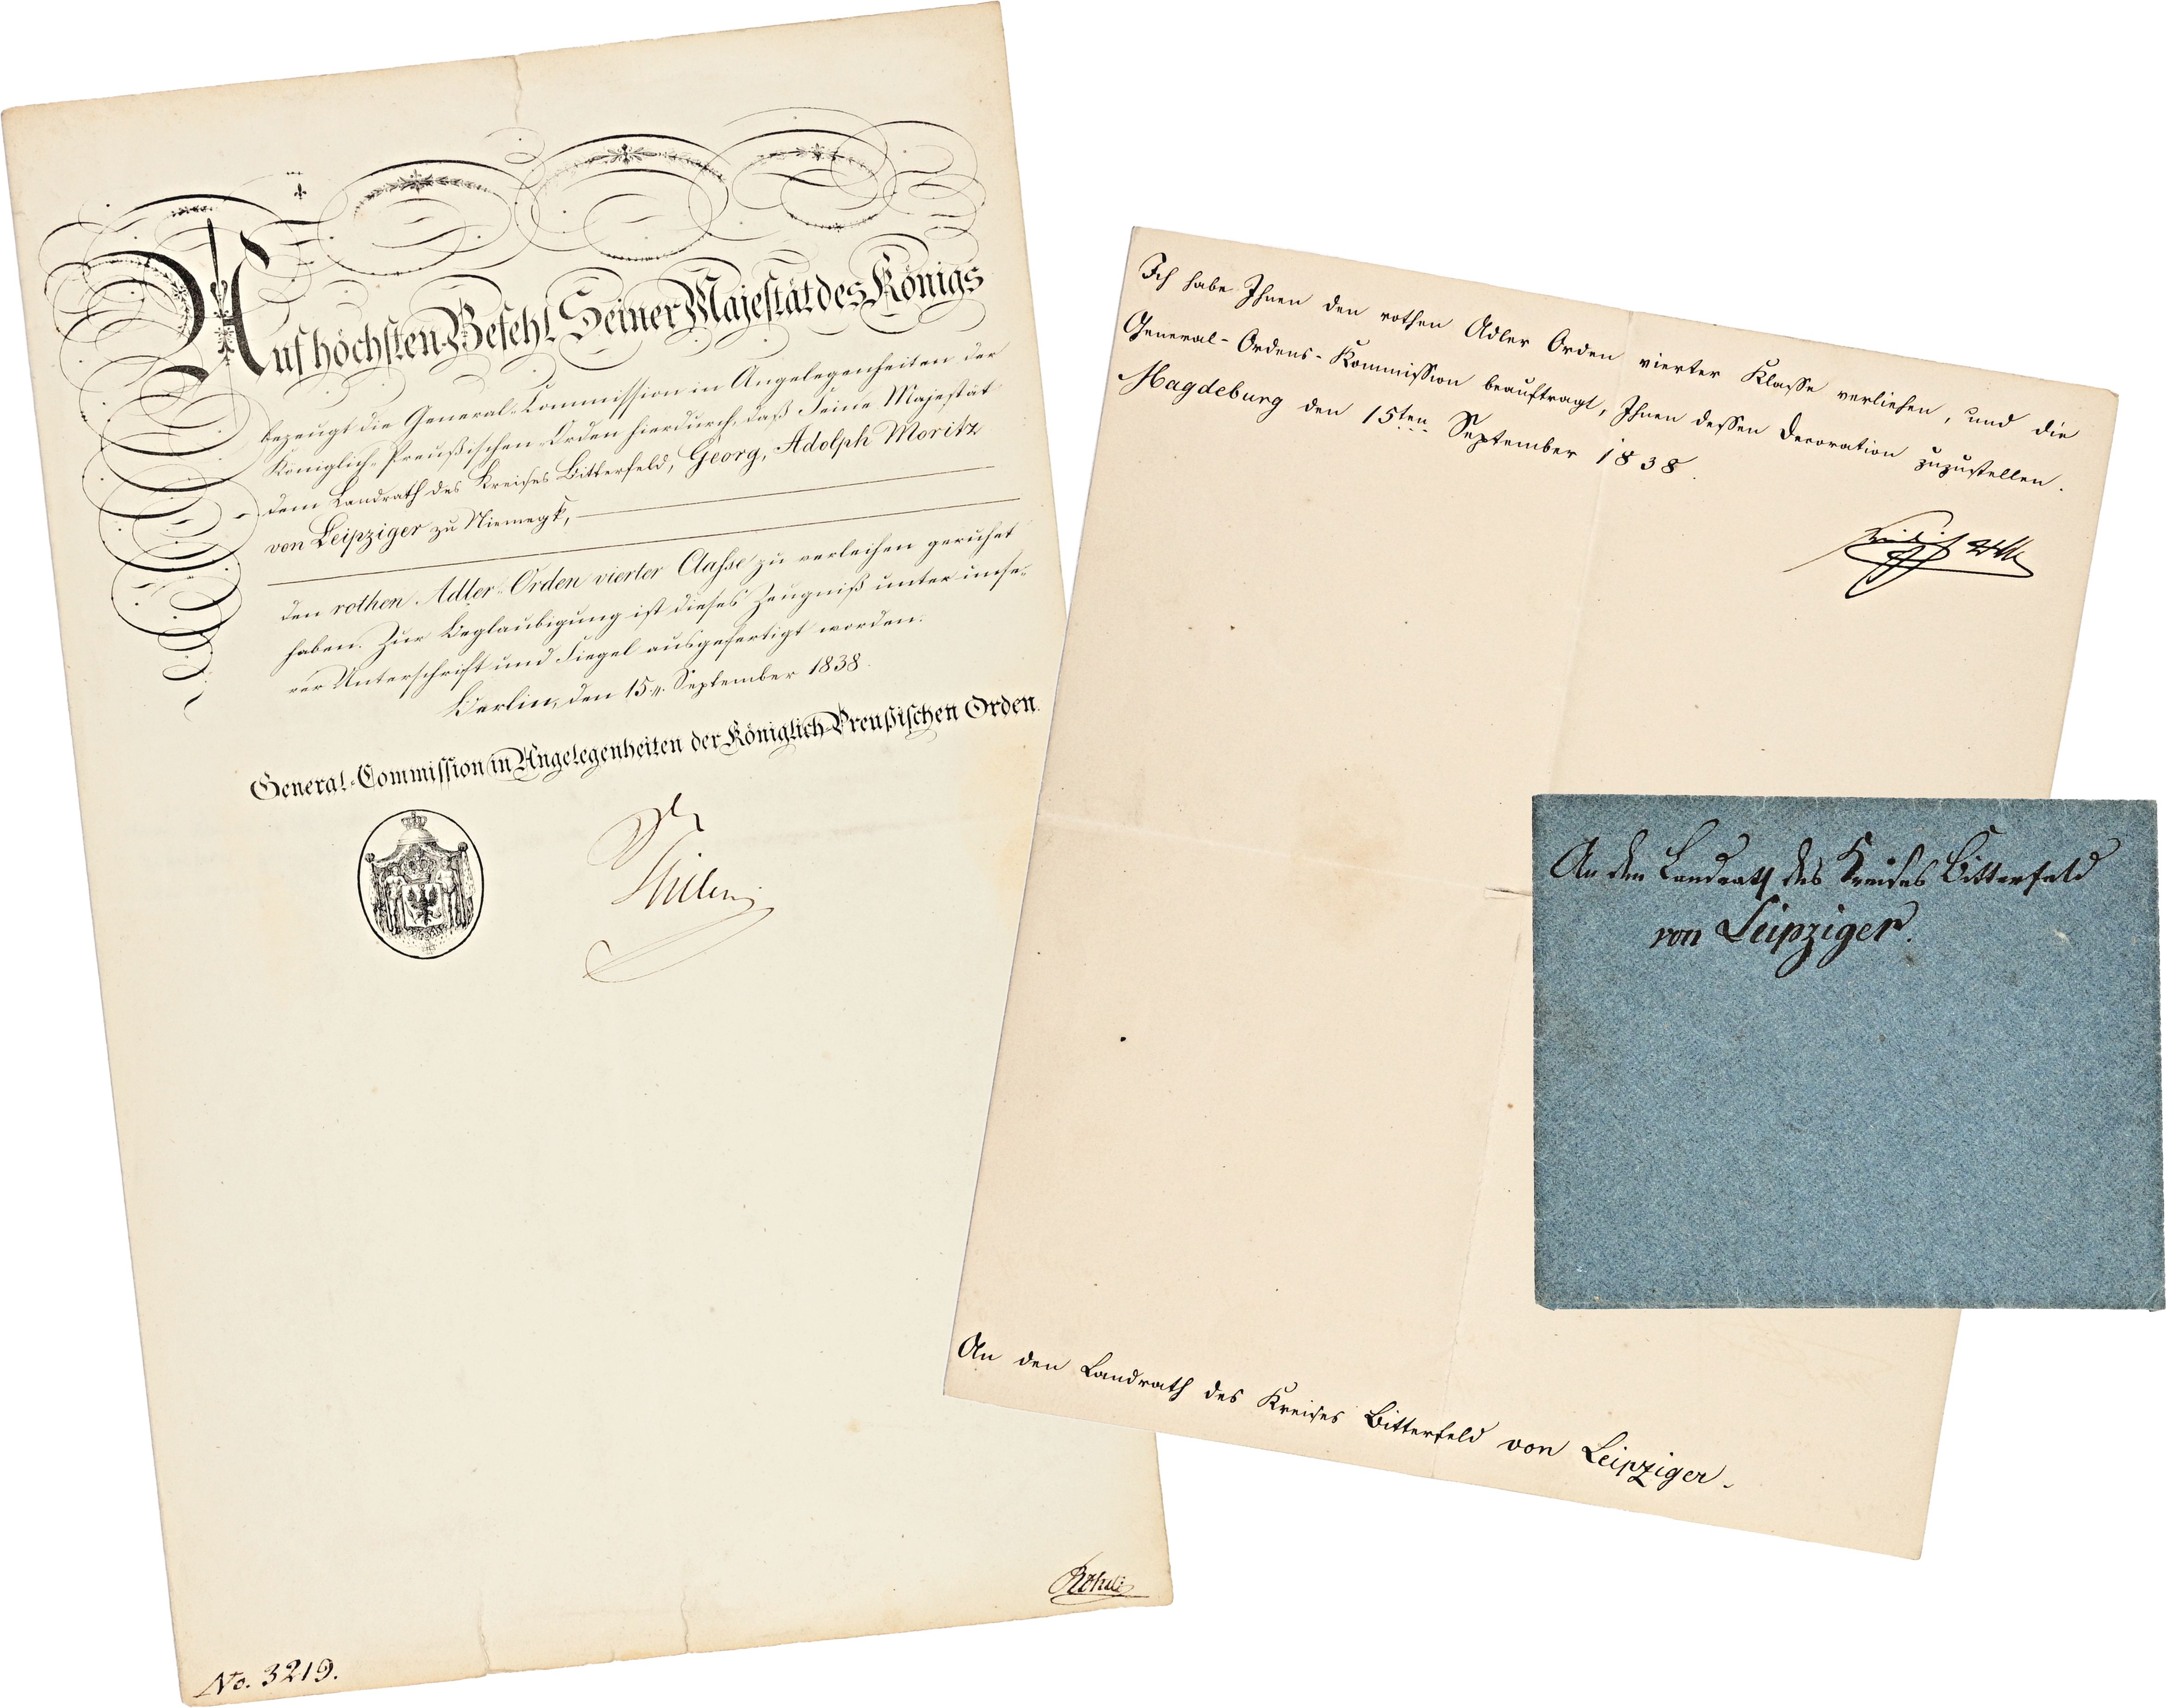 Auf höchsten Befehl Seiner Majestät des Königs
bezeugt die General-Commission in Angelegenheiten der
Königlich-Preußischen Orden hierdurch, daß Seine Majestät
dem Landrath des Kreises Bitterfeld, Georg, Adolph Moritz
von Leipziger zu Niemegk,
den rothen Adler-Orden vierter Classe zu verleihen geruhet
haben. Zur Beglaubigung ist dieses Zeugniß unter unse-
rer Unterschrift und Siegel ausgefertigt worden.
Berlin, den 15. September 1838.
General-Commission in Angelegenheiten der Königlich-Preußischen Orden.
No. 3219.
Ich habe Ihnen den rothen Adler Orden vierter Klasse verliehen, und die
General-Ordens-Kommission beauftragt, Ihnen dessen Decoration zuzustellen.
Magdeburg den 15ten September 1838.
An den Landrath des Kreises Bitterfeld von Leipziger.
An den Landrath des Kreises Bitterfeld
von Leipziger.